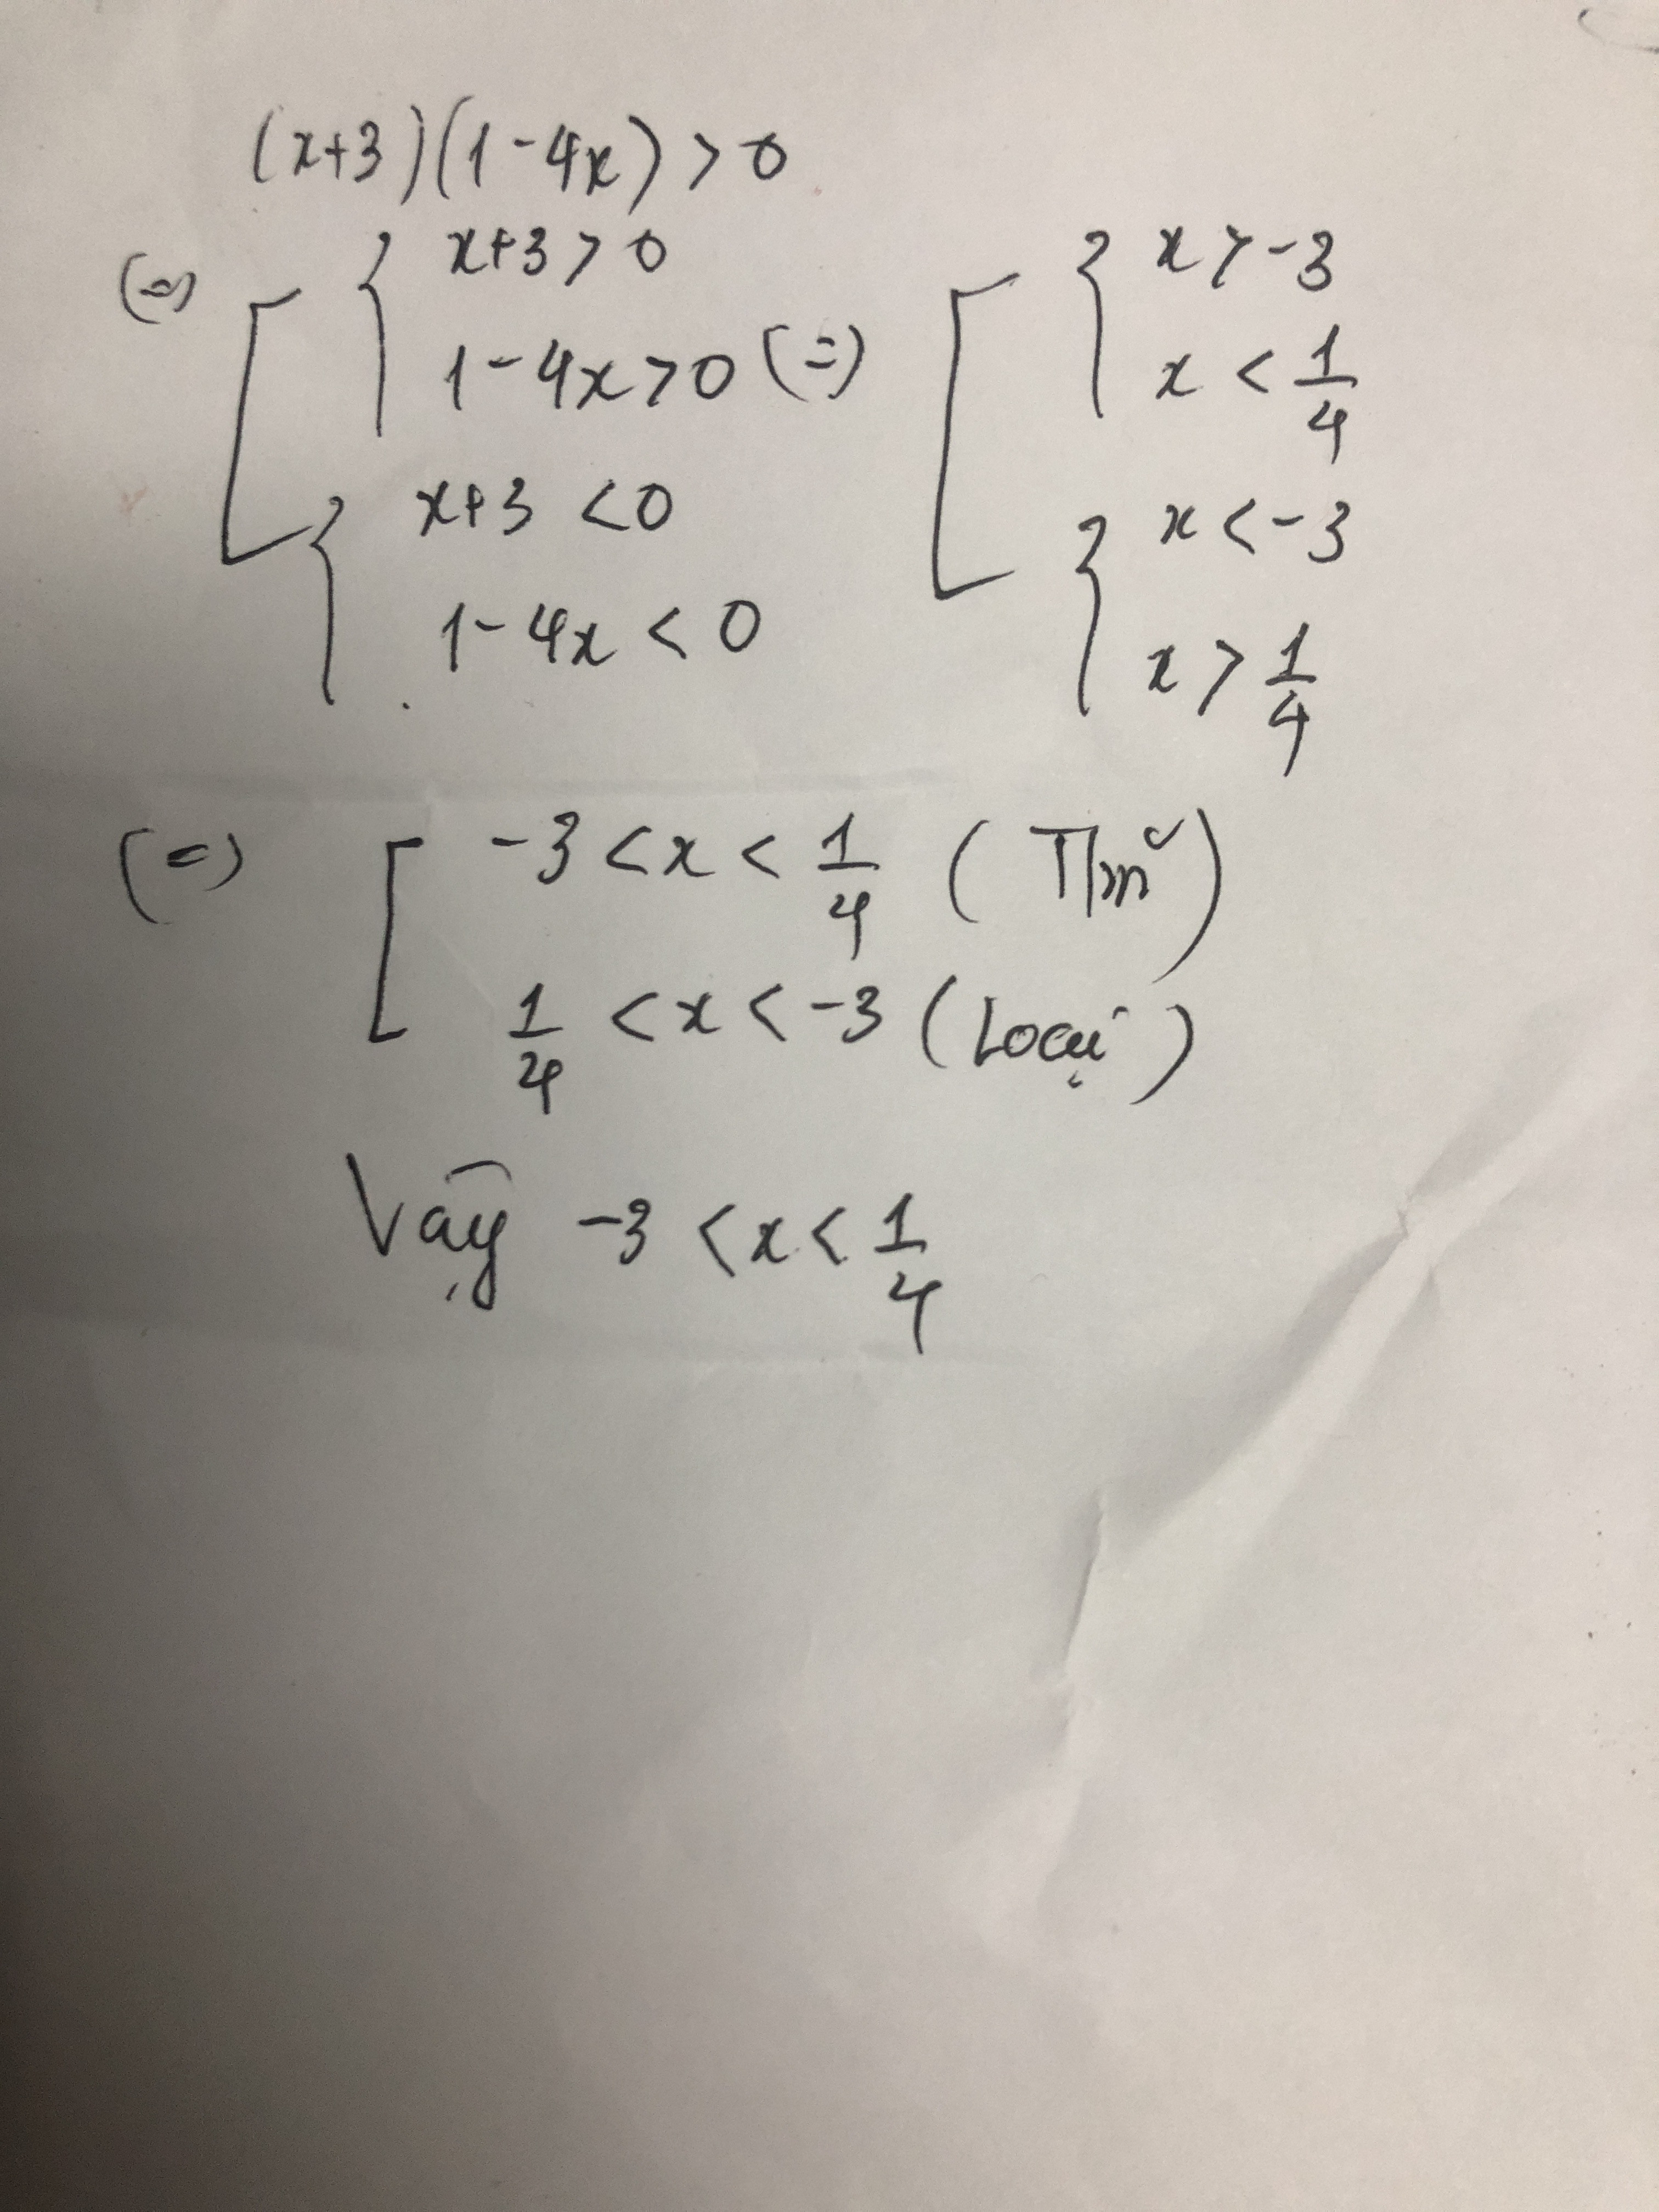 (x+3)(1-4x) > 0
(=) [ { x+3 > 0
1-4x > 0 (=) [ { x > -3
x < 1/4
{ x+3 < 0
1-4x < 0
{ x < -3
x > 1/4
(=) [ -3 < x < 1/4 (Tm)
1/4 < x < -3 (Loại)
Vậy -3 < x < 1/4